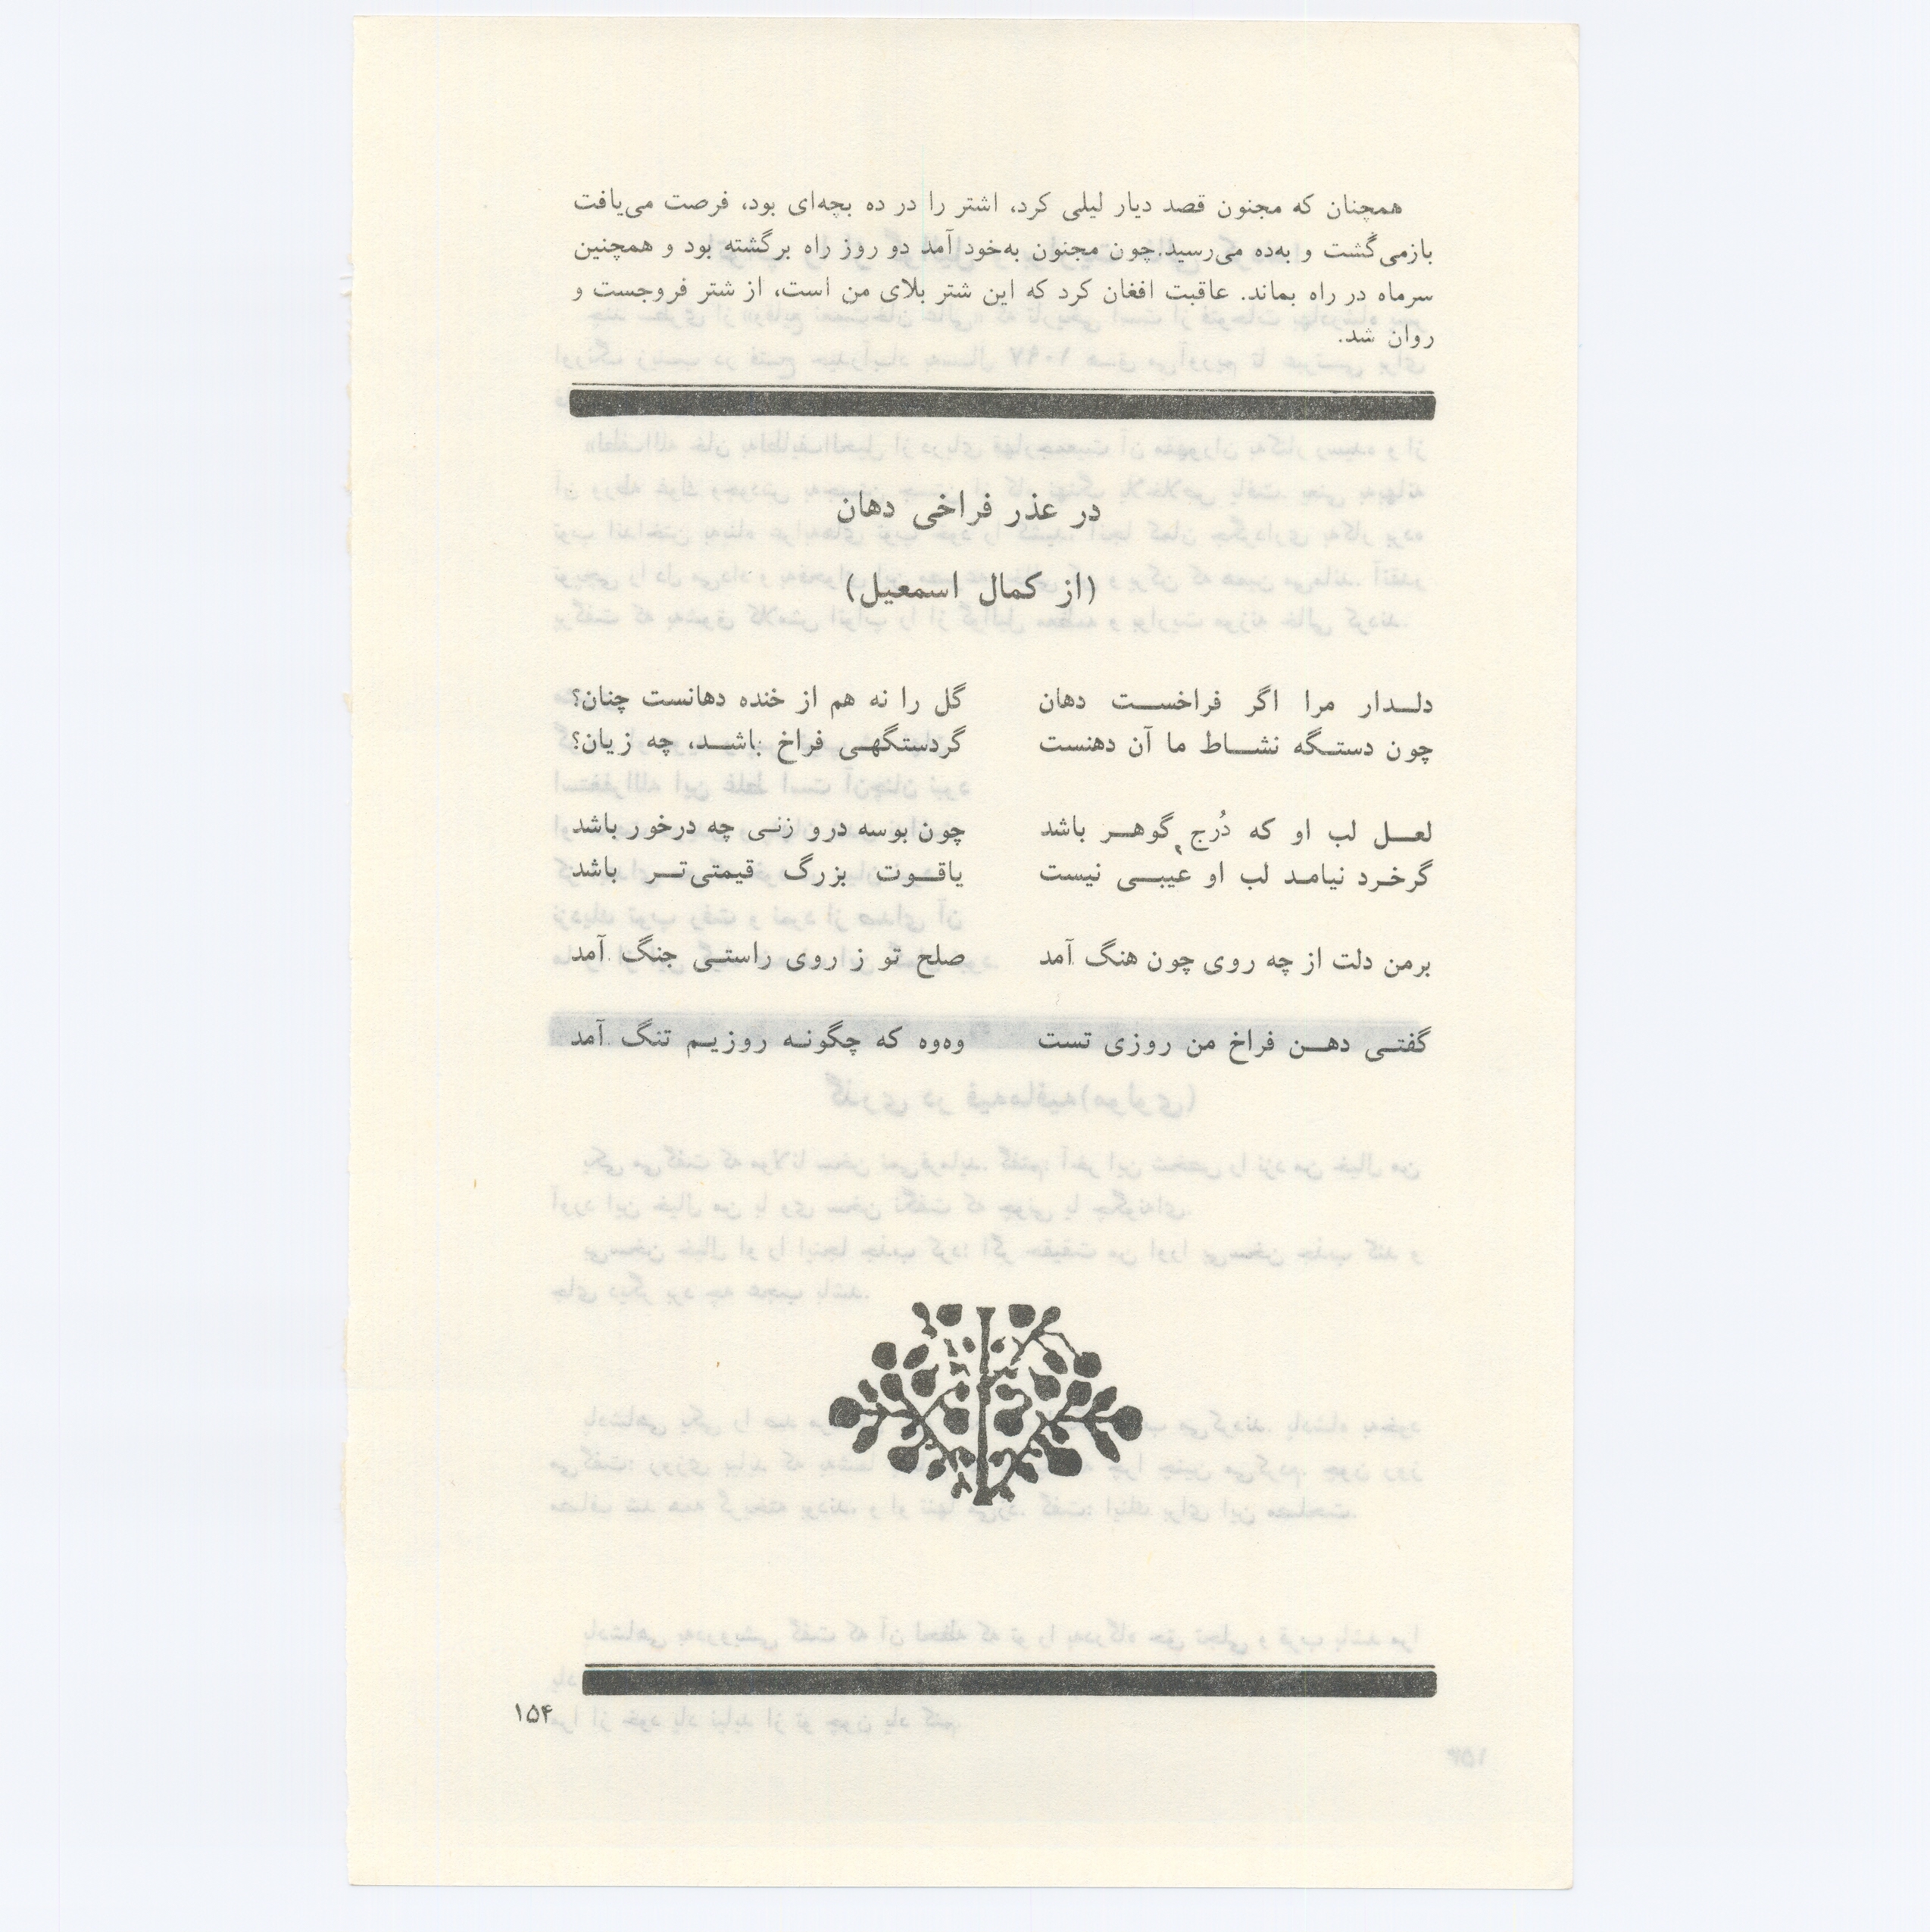 همچنان که مجنون قصد دیار لیلی کرد، اشتر را در ده بچه‌ای بود، فرصت می‌یافت
بازمی‌گشت و به‌ده می‌رسید. چون مجنون به‌خود آمد دو روز راه برگشته بود و همچنین
سرماه در راه بماند. عاقبت افغان کرد که این شتر بلای من است، از شتر فروجست و
روان شد.
در عذر فراخی دهان
(از کمال اسمعیل)
دلدار مرا اگر فراخست دهان گل را نه هم از خنده دهانست چنان؟
چون دستگه نشاط ما آن دهنست گردستگهی فراخ باشد، چه زیان؟
لعل لب او که دُرجِ گوهر باشد چون بوسه درو زنی چه درخور باشد
گرخرد نیامد لب او عیبی نیست یاقوت بزرگ قیمتی‌تر باشد
برمن دلت از چه روی چون هنگ آمد صلح تو ز روی راستی جنگ آمد
گفتی دهن فراخ من روزی تست وه‌وه که چگونه روزیم تنگ آمد
۱۵۴